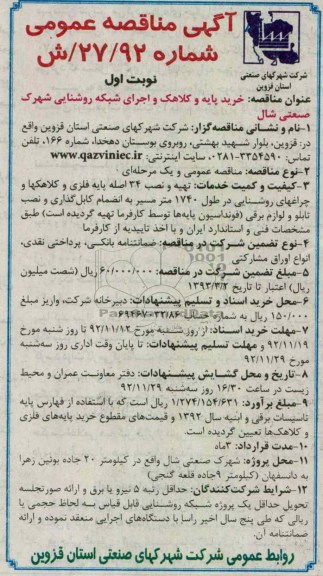 آگهی مناقصه عمومی
شماره ۲۷/۹۲/ش
شرکت شهرکهای صنعتی
استان قزوین
نوبت اول
عنوان مناقصه: خرید پایه و کلاهک و اجرای شبکه روشنایی شهرک
صنعتی شال
۱-نام و نشانی مناقصه‌گزار: شرکت شهرکهای صنعتی استان قزوین واقع
در: قزوین، بلوار شهید بهشتی، روبروی بوستان دهخدا، شماره ۱۶۶، تلفن
تماس: ۳۳۵۴۵۹۰-۰۲۸۱، سایت اینترنتی: www.qazviniec.ir
۲-نوع مناقصه: مناقصه عمومی و یک مرحله‌ای
۳-کیفیت و کمیت خدمات: تهیه و نصب ۳۴ اصله پایه فلزی و کلاهکها و
چراغهای روشنایی در طول ۱۷۴۰ متر مسیر به انضمام کابل‌گذاری و نصب
تابلو و لوازم برقی (فونداسیون پایه‌ها توسط کارفرما تهیه گردیده است) طبق
مشخصات فنی و استاندارد ایران و با اخذ تاییدیه از کارفرما
۴-نوع تضمین شرکت در مناقصه: ضمانتنامه بانکی، پرداختی نقدی،
انواع اوراق مشارکتی
۵-مبلغ تضمین شرکت در مناقصه: ۶۰/۰۰۰/۰۰۰ ریال (شصت میلیون
ریال) اعتبار تا تاریخ ۱۳۹۳/۳/۲
۶-محل خرید اسناد و تسلیم پیشنهادات: دبیرخانه شرکت، واریز مبلغ
۱۵۰/۰۰۰ ریال به شماره حساب
۷-مهلت خرید اسناد: از روز شنبه مورخ ۹۲/۱۱/۱۲ تا روز شنبه مورخ
۹۲/۱۱/۱۹ و مهلت تسلیم پیشنهادات: تا پایان وقت اداری روز سه‌شنبه
مورخ ۹۲/۱۱/۲۹
۸-تاریخ و محل گشایش پیشنهادات: دفتر معاونت عمران و محیط
زیست در ساعت ۱۶/۳۰ روز سه‌شنبه ۹۲/۱۱/۲۹
۹-مبلغ برآورد: ۱/۲۷۴/۱۵۴/۶۳۱ ریال است که با استفاده از فهارس پایه
تاسیسات برقی و ابنیه سال ۱۳۹۲ و قیمت‌های مقطوع خرید پایه‌های فلزی
و کلاهک‌ها تعیین گردیده است.
۱۰-مدت قرارداد: ۳ماه
۱۱-محل پروژه: شهرک صنعتی شال واقع در کیلومتر ۲۰ جاده بوئین زهرا
به دانسفهان (کیلومتر ۹جاده قلعه گنجی)
۱۲-شرایط شرکت‌کنندگان: حداقل رتبه ۵ نیرو یا برق و ارائه صورتجلسه
تحویل حداقل یک پروژه شبکه روشنایی قابل قیاس به لحاظ حجمی یا
ریالی که طی پنج سال اخیر راسا با دستگاه‌های اجرایی منعقد نموده و ارائه
ضمانتنامه آن.
روابط عمومی شرکت شهرکهای صنعتی استان قزوین